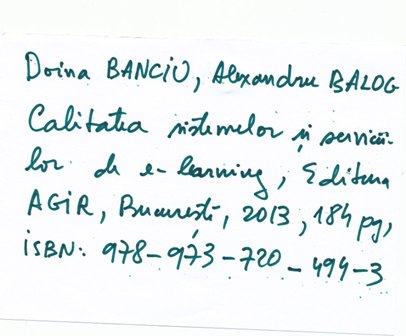 Doina BANCIU, Alexandru BALOG
Calitatea sistemelor și servicii-
lor de e-learning, Editura
AGIR, București, 2013, 184 pg,
ISBN: 978-973-720-494-3